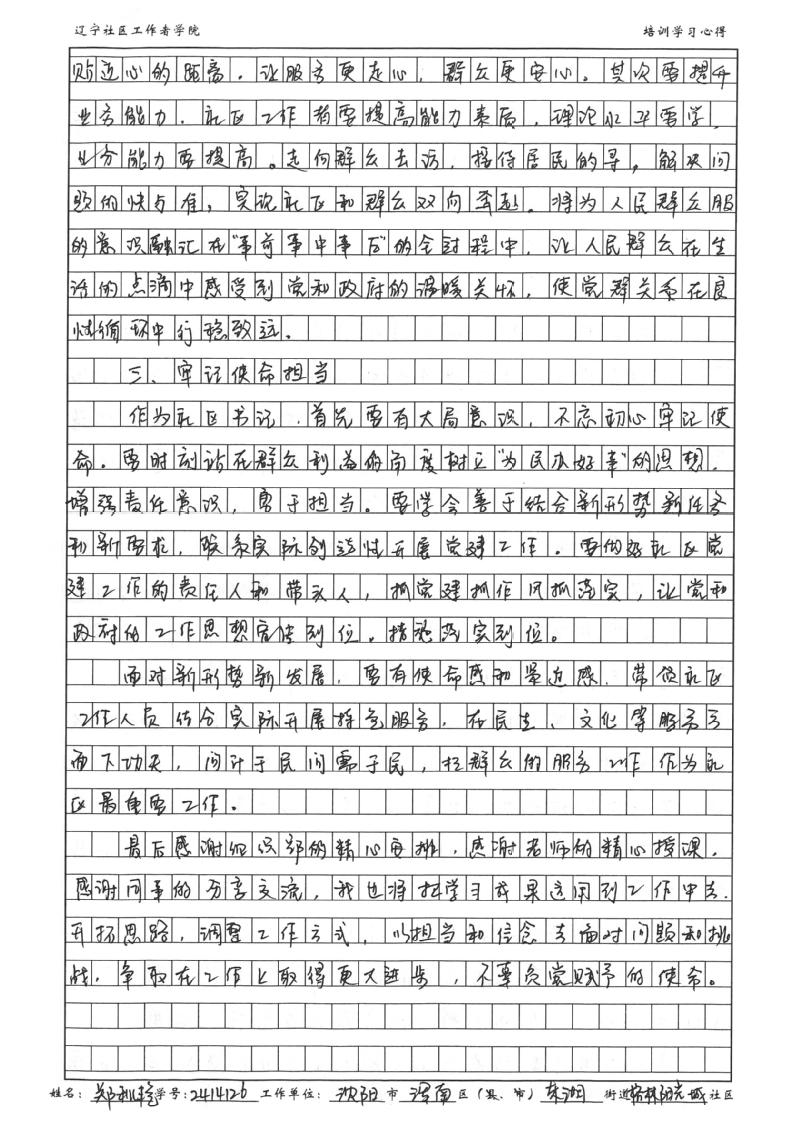 辽宁社区工作者学院
培训学习心得
贴近心的距离，让服务更走心，群众更安心。其次要提升
业务能力，社区工作者要提高能力素质，理论水平要学，
业务能力要提高。走向群众去访，接待居民的寻，解决问
题的快与准，实现社区和群众双向奔赴。将为人民群众服
的意识融汇在“事前事中事后”的全过程中，让人民群众在生
活的点滴中感受到党和政府的温暖关怀，使党群关系在良
性循环中行稳致远。
三、牢记使命担当
作为社区书记，首先要有大局意识，不忘初心牢记使
命。要时刻站在群众利益的角度树立“为民办好事”的思想，
增强责任意识，勇于担当。要学会善于结合新形势新任务
和新要求，联系实际创造性开展党建工作。要做好社区党
建工作的责任人和带头人，抓党建抓作风抓落实，让党和
政府的工作思想宣传到位，措施落实到位。
面对新形势新发展，要有使命感和紧迫感，带领社区
工作人员结合实际开展特色服务，在民生、文化等服务方
面下功夫，问计于民问需于民，把群众的服务工作作为社
区最重要工作。
最后感谢组织部的精心安排，感谢老师的精心授课，
感谢同事的分享交流，我也将把学习成果运用到工作中去，
开拓思路，调整工作方式，以担当和信念去面对问题和挑
战，争取在工作上取得更大进步，不辜负党赋予的使命。
姓名：郑 学号：2414126 工作单位：沈阳市浑南区（县、市）东湖街道格林阳光城社区